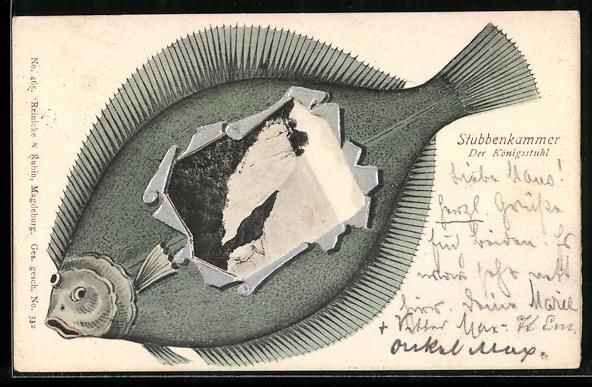 No. 465. Reinicke & Rubin, Magdeburg. Ges. gesch. No. 332
Stubbenkammer
Der Königsstuhl
Liebe Mans!
herzl. Grüße
für beiden. Es
war sehr nett
hier. Deine Marie
+ Vetter Max-
Onkel Max.